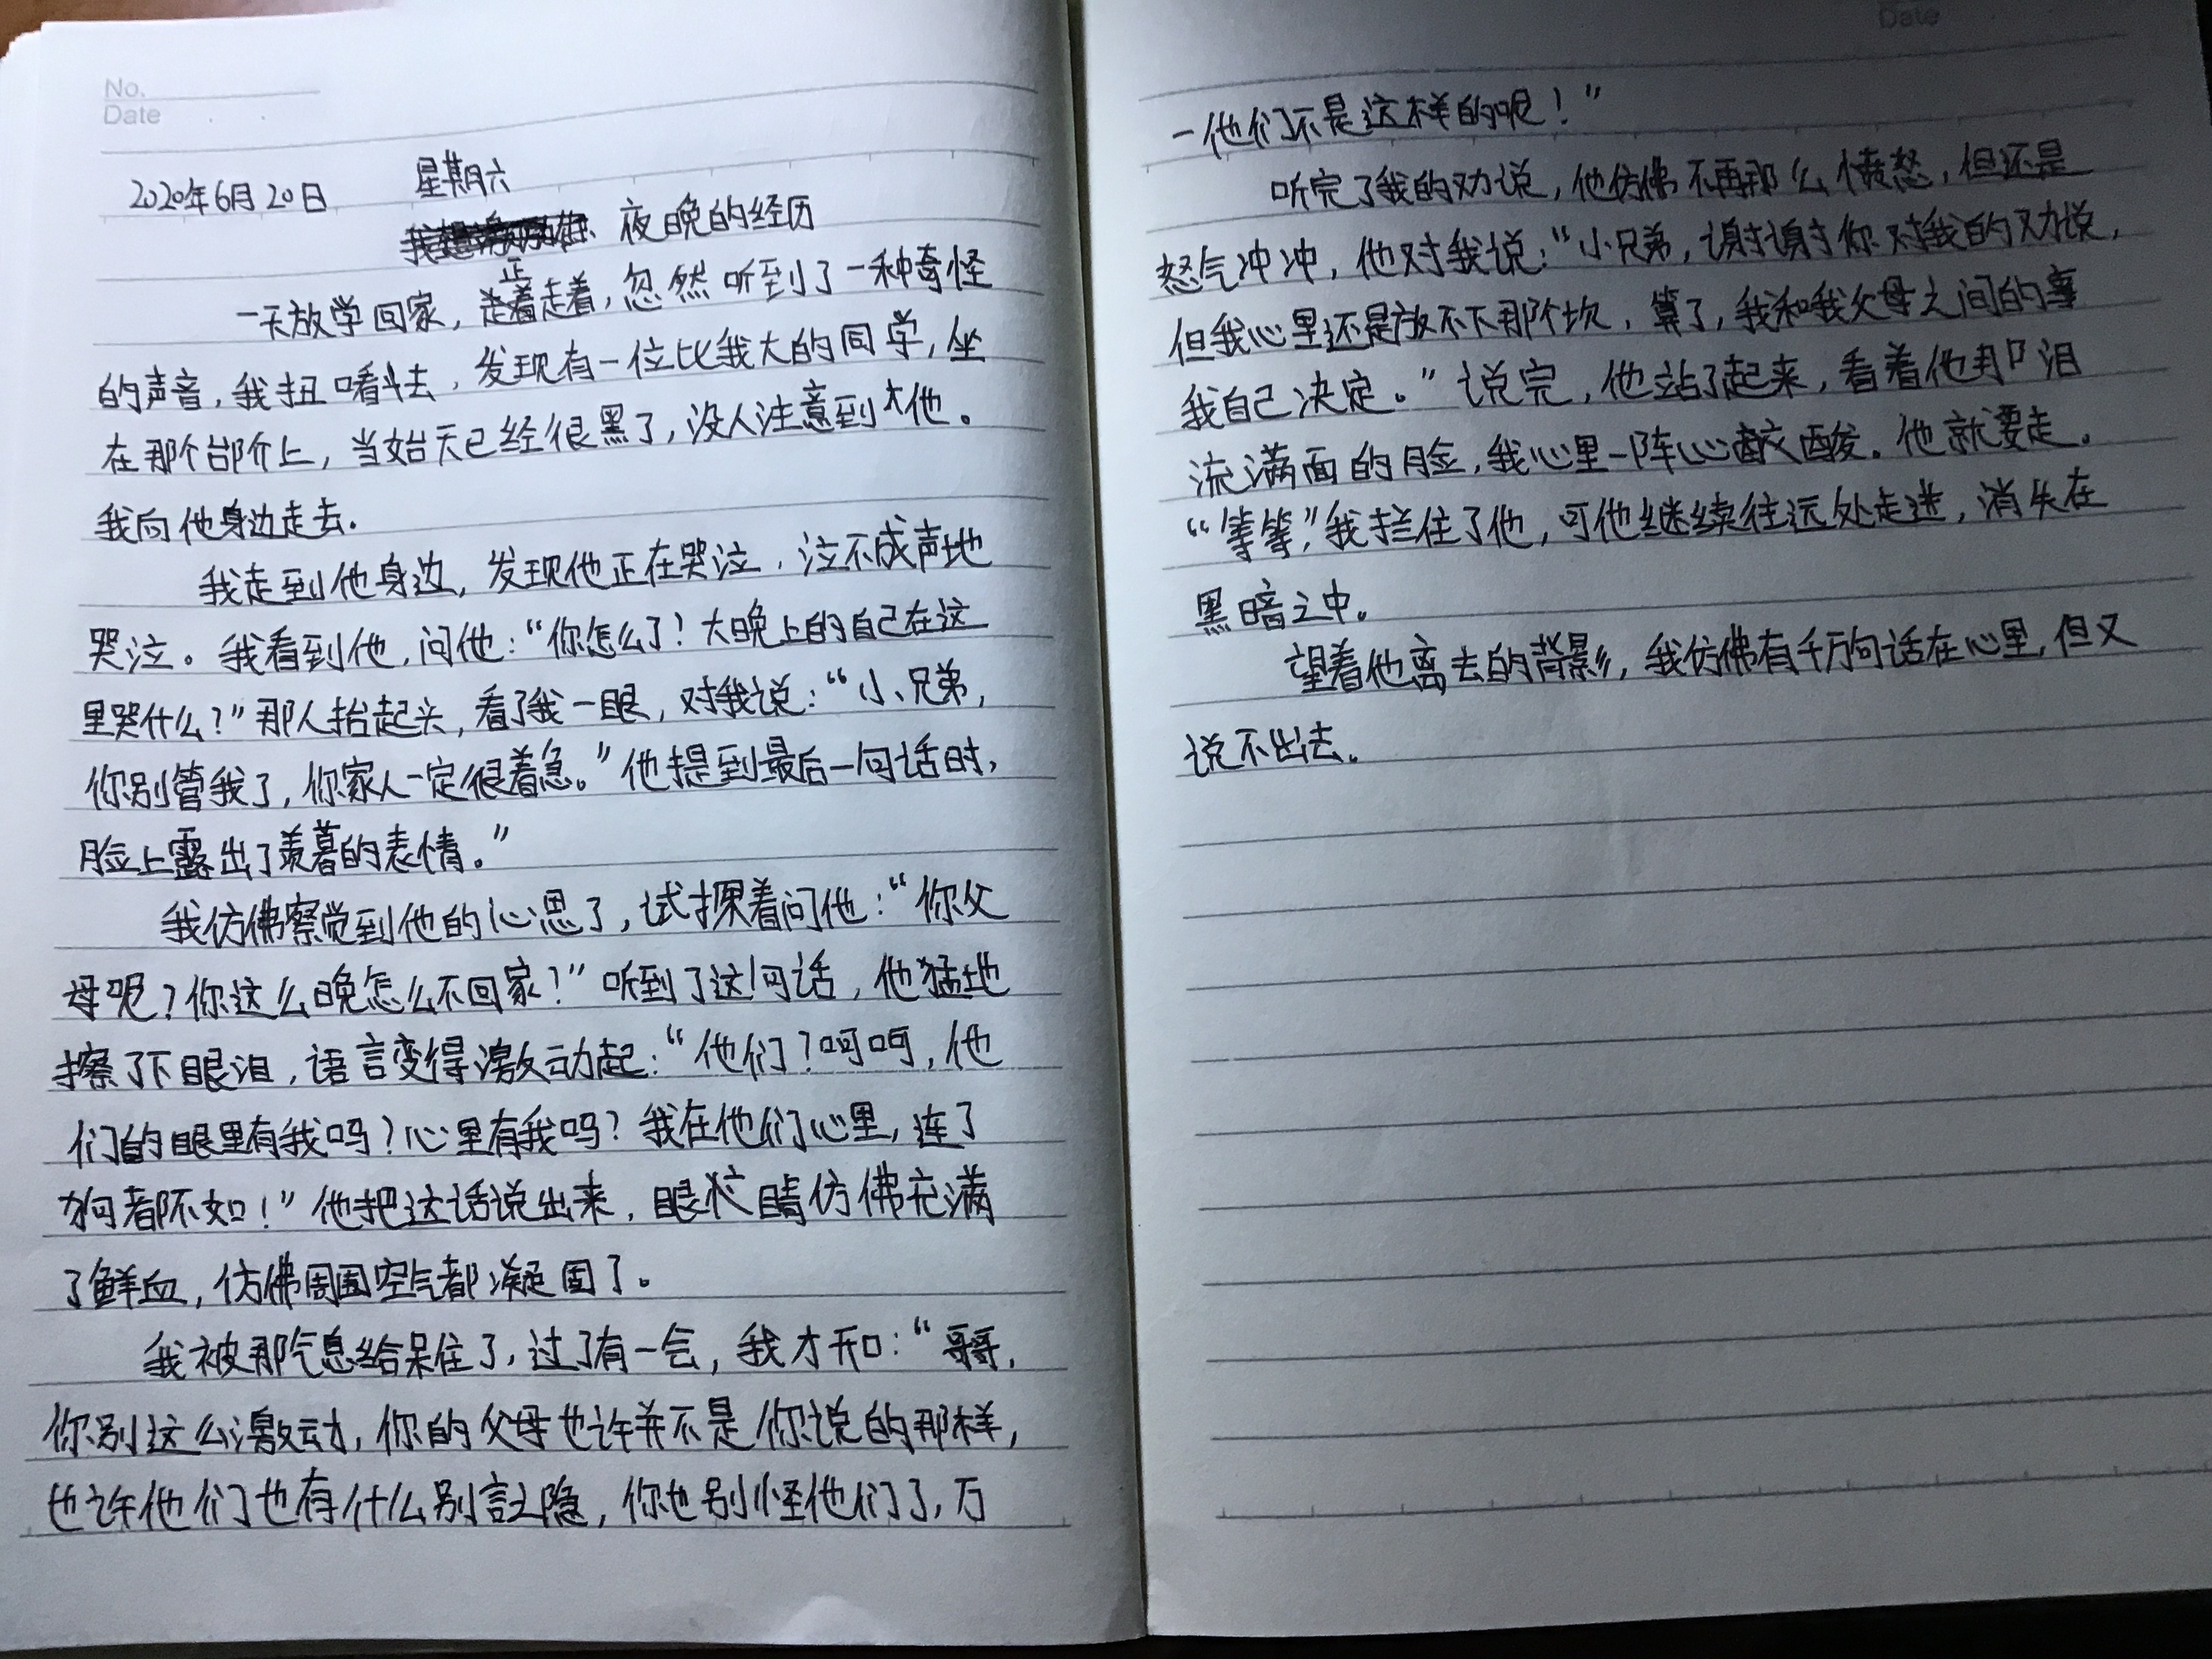 No.
Date
2020年6月20日 星期六
夜晚的经历
一天放学回家，正走着走着，忽然听到了一种奇怪
的声音，我扭头看去，发现有一位比我大的同学，坐
在那个台阶上，当始天已经很黑了，没人注意到他。
我向他身边走去。
我走到他身边，发现他正在哭泣，泣不成声地
哭泣。我看到他，问他：“你怎么了！大晚上的自己在这
里哭什么？”那人抬起头，看了我一眼，对我说：“小兄弟，
你别管我了，你家人一定很着急。”他提到最后一句话时，
脸上露出了羡慕的表情。”
我仿佛察觉到他的心思了，试探着问他：“你父
母呢？你这么晚怎么不回家！”听到了这句话，他猛地
擦了下眼泪，语言变得激动起：“他们？呵呵，他
们的眼里有我吗？心里有我吗？我在他们心里，连了
狗都不如！”他把这话说出来，眼睛仿佛充满
了鲜血，仿佛周围空气都凝固了。
我被那气息给呆住了，过了有一会，我才开口：“哥哥，
你别这么激动，你的父母也许并不是你说的那样，
也许他们也有什么别言之隐，你也别怪他们了，万
Date
一他们不是这样的呢！”
听完了我的劝说，他仿佛不再那么愤怒，但还是
怒气冲冲，他对我说：“小兄弟，谢谢你对我的劝说，
但我心里还是放不下那个坎，算了，我和我父母之间的事
我自己决定。”说完，他站了起来，看着他那泪
流满面的脸，我心里一阵心酸。他就要走。
“等等，”我拦住了他，可他继续往远处走进，消失在
黑暗之中。
望着他离去的背影，我仿佛有千万句话在心里，但又
说不出去。